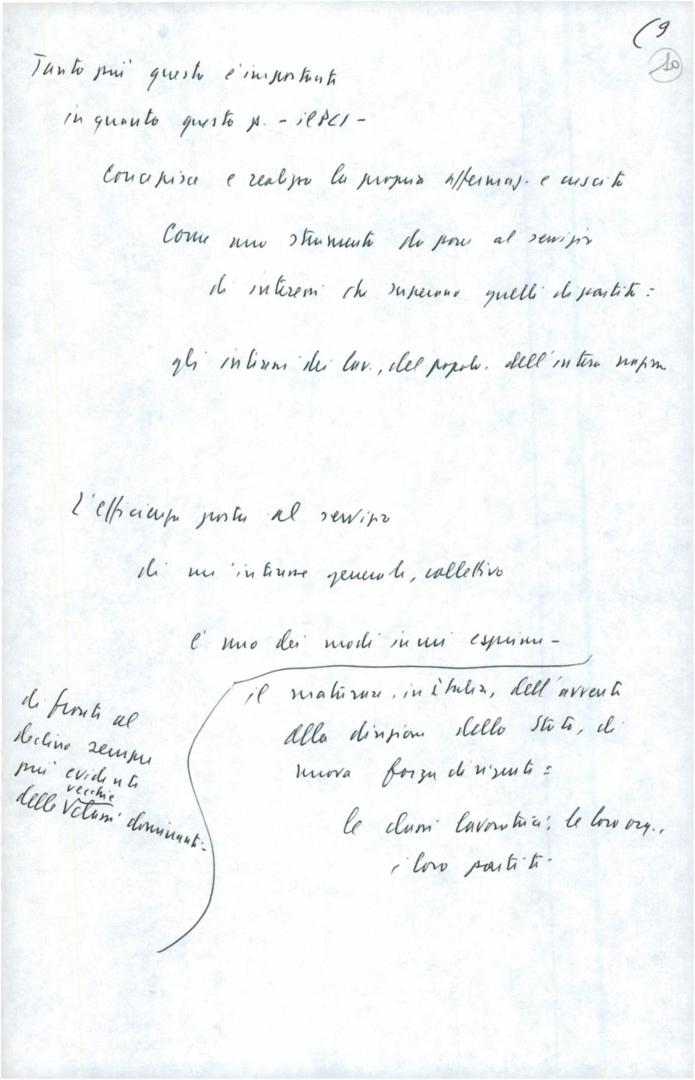 (9
10
Tanto più questo è importante
in quanto questo p. - il PCI -
concepisce e realizza la propria affermaz. e crescita
come uno strumento da porre al servizio
di interessi che superano quelli di partito:
gli interessi dei lav., del popolo, dell'intera nazione
L'efficienza posta al servizio
di un'interesse generale, collettivo
è uno dei modi in cui esprime -
il maturare, in Italia, dell'avvento
alla direzione dello Stato, di
nuova forza dirigente:
le classi lavoratrici, le loro org.,
i loro partiti.
di fronte al
declino sempre
più evidente
delle vecchie classi dominanti -